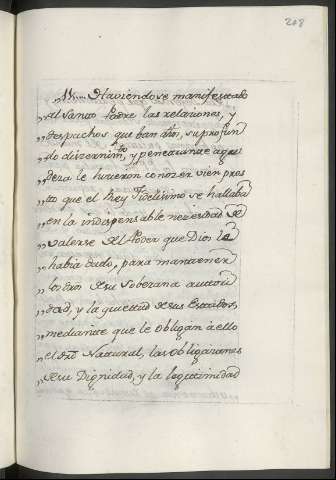 208
"N.... Haviendose manifestado
"al Santo Padre las relaciones, y
"despachos que van dhos, su profun
"do discernim.to, y penetrante agu
"deza le hicieron conozer vien pres
"to que el Rey Fidelisimo se hallaba
"en la indispensable necesidad de
"valerse del Poder que Dios le
"havia dado, para mantener
"los dros de su Soberana autori
"dad, y la quietud de sus Estados,
"mediante que le obligan à ello
"el dro Natural, las obligaciones
"de su Dignidad, y la legitimidad